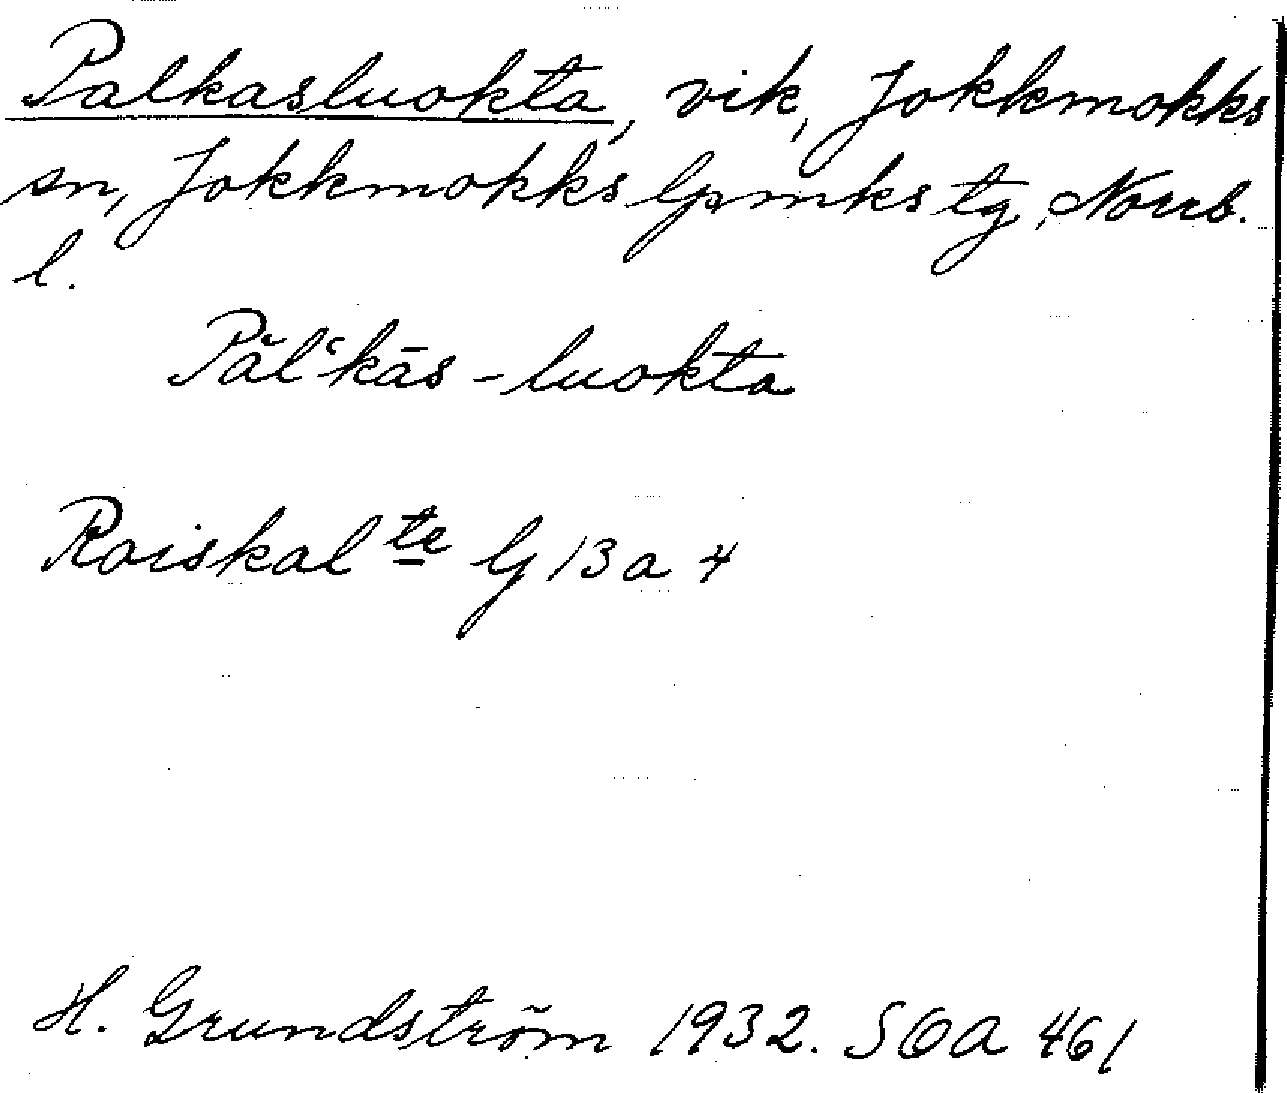 Palkasluokta, vik, Jokkmokks
sn, Jokkmokks lpmks tg, Norrb.
l.
Păl‘kās-luokta
Raiskal te lj 13 a 4
H. Grundström 1932. SOA 461